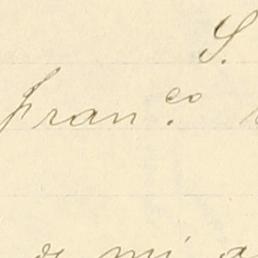 S.
Fran.co
de mi a